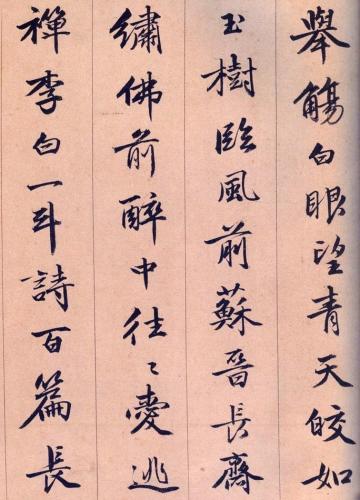 舉觴白眼望青天皎如
玉樹臨風前蘇晉長齋
繡佛前醉中往〻愛逃
禪李白一斗詩百篇長